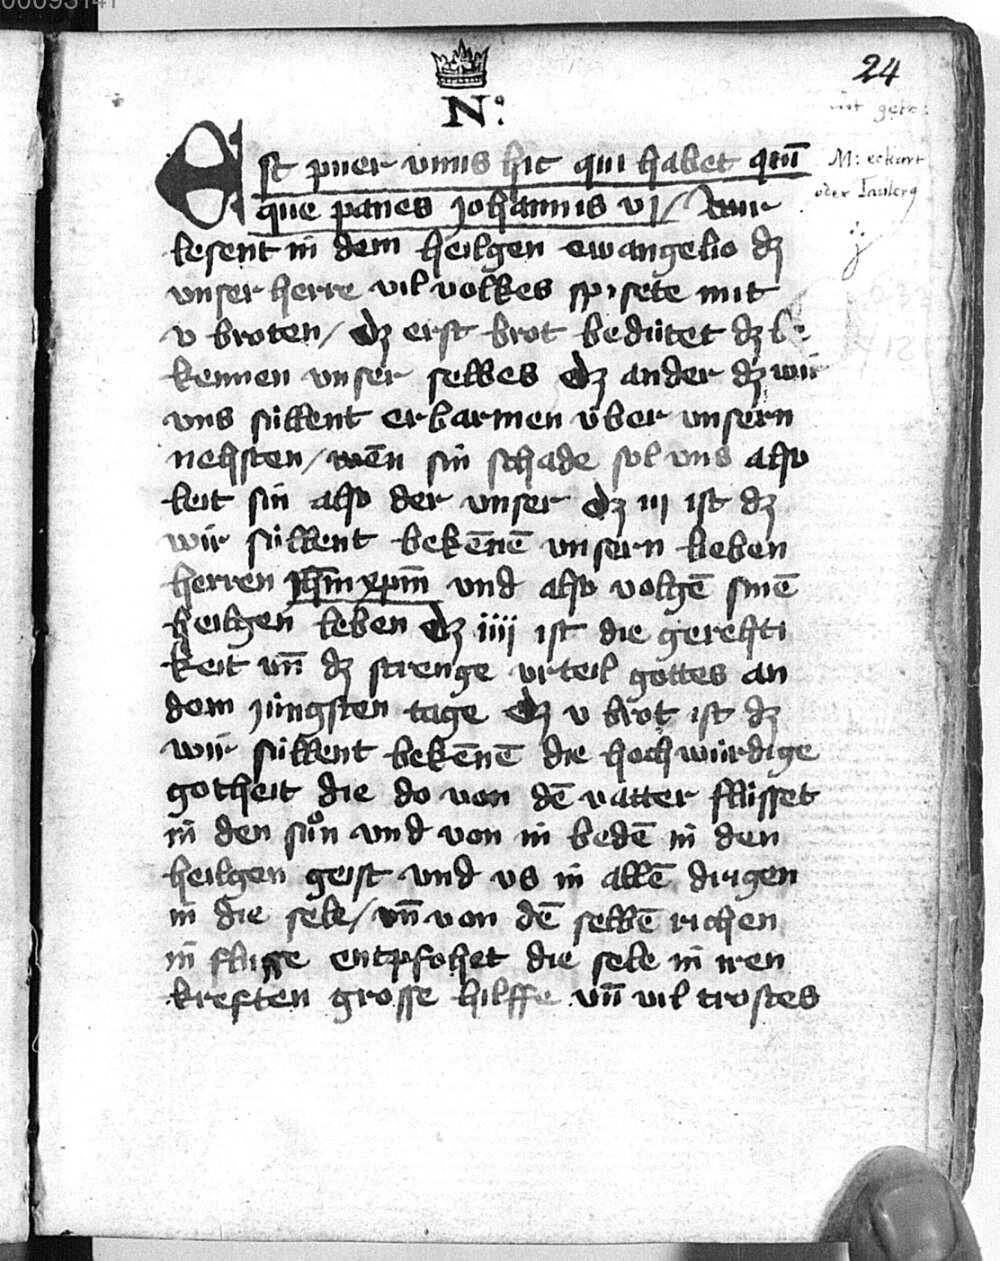 00093141
24
N:
M: eckart
oder Taulerg
Est puer vnus hic qui habet qui̅
que panes johannis vj / Wir
lesent in dem heilgen ewangelio dz
vnser herre vil volkes spisete mit
v broten / dz erst brot bedútet dz be
kennen vnser selbes dz ander dz wir
vns súllent erbarmen v́ber vnsern
nehsten / wen̅ sin schade sol vns also
leit sin also der vnser dz iij ist dz
wir súllent beken̅ne̅ vnsern lieben
herren jhm̅ xpm̅ vnd also volge̅ sine̅
heilgen leben dz iiij ist die gerehti
keit vn̅ dz strenge vrteil gottes an
dem jungsten tage dz v brot ist dz
wir súllent beken̅ne̅ die hochwúrdige
gotheit die do von de̅ vatter flússet
in den suͦn vnd von in bede̅ in den
heilgen geist vnd vs in alle̅ dingen
in die sele / vn̅ von de̅ selbe̅ richen
in flusse entpfohet die sele in iren
kreften grosse hilffe vn̅ vil trostes